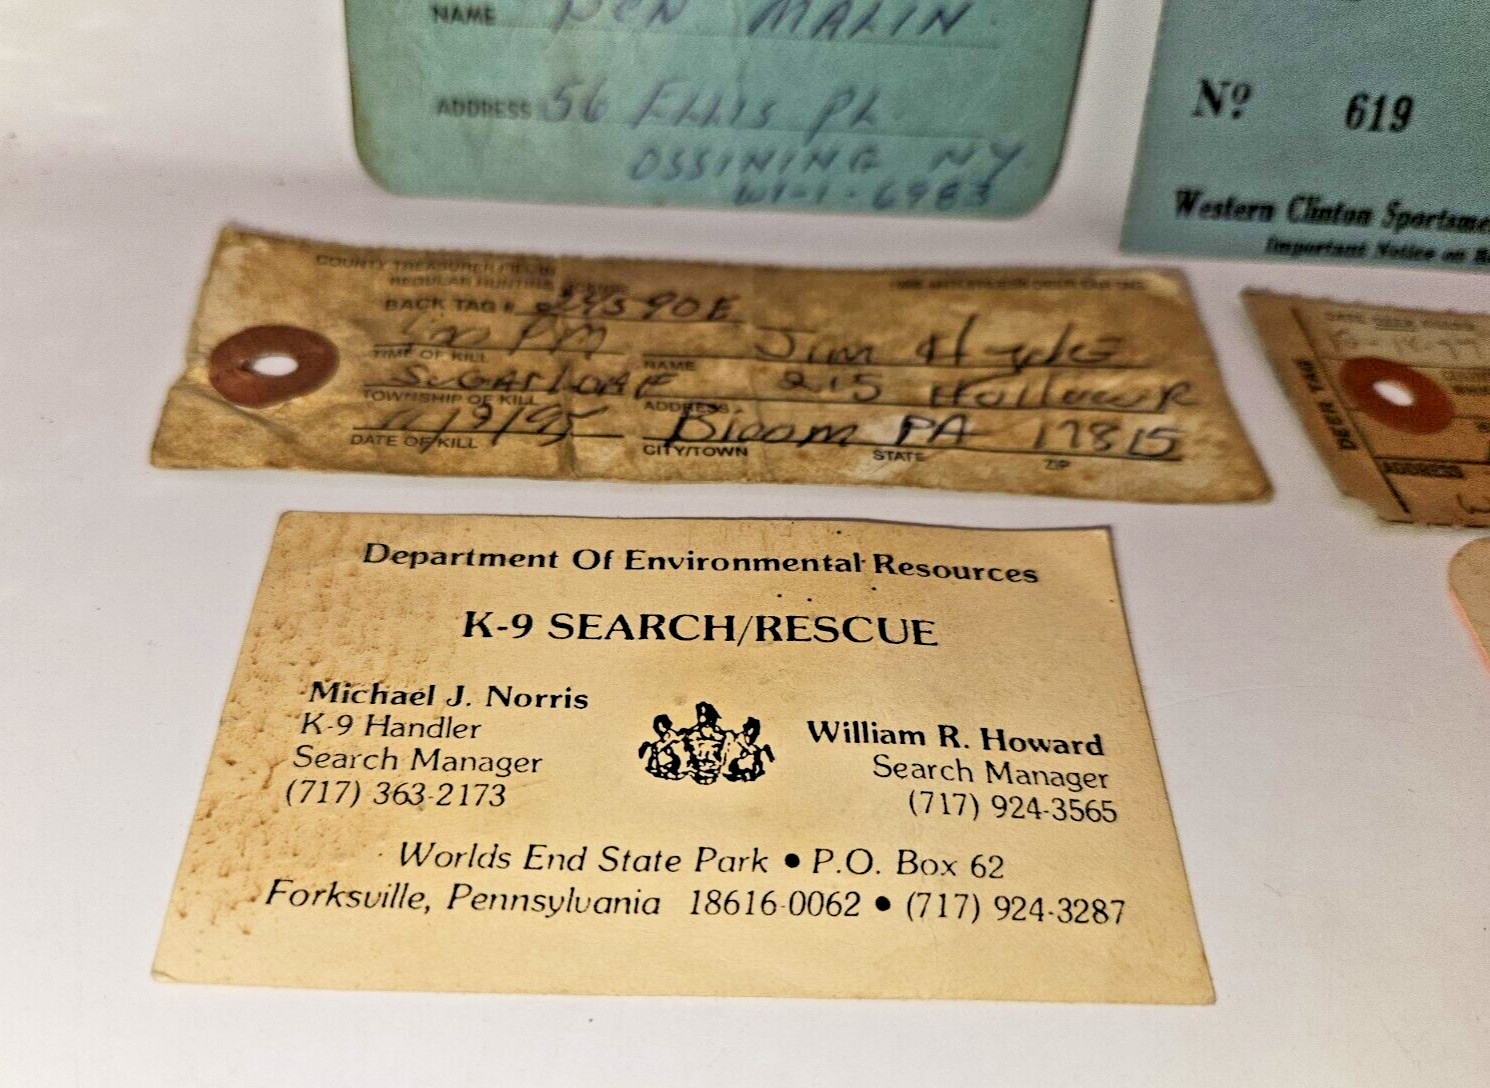 NAME Ken MALIN
ADDRESS 56 ELLIS PL.
OSSINING NY
WI-1-6983
Nº 619
Western Clinton Sportsme
Important Notice on
COUNTY TREASURER FILL IN
REGULAR HUNTING
BACK TAG #
PM
TIME OF KILL
Jim
NAME
SUGARLOAF
TOWNSHIP OF KILL
215
ADDRESS
11/9/95
DATE OF KILL
Bloom PA 17815
CITY/TOWN STATE ZIP
DEER TAG
ADDRESS
Department Of Environmental Resources
K-9 SEARCH/RESCUE
Michael J. Norris
K-9 Handler
Search Manager
(717) 363-2173
William R. Howard
Search Manager
(717) 924-3565
Worlds End State Park • P.O. Box 62
Forksville, Pennsylvania 18616-0062 • (717) 924-3287